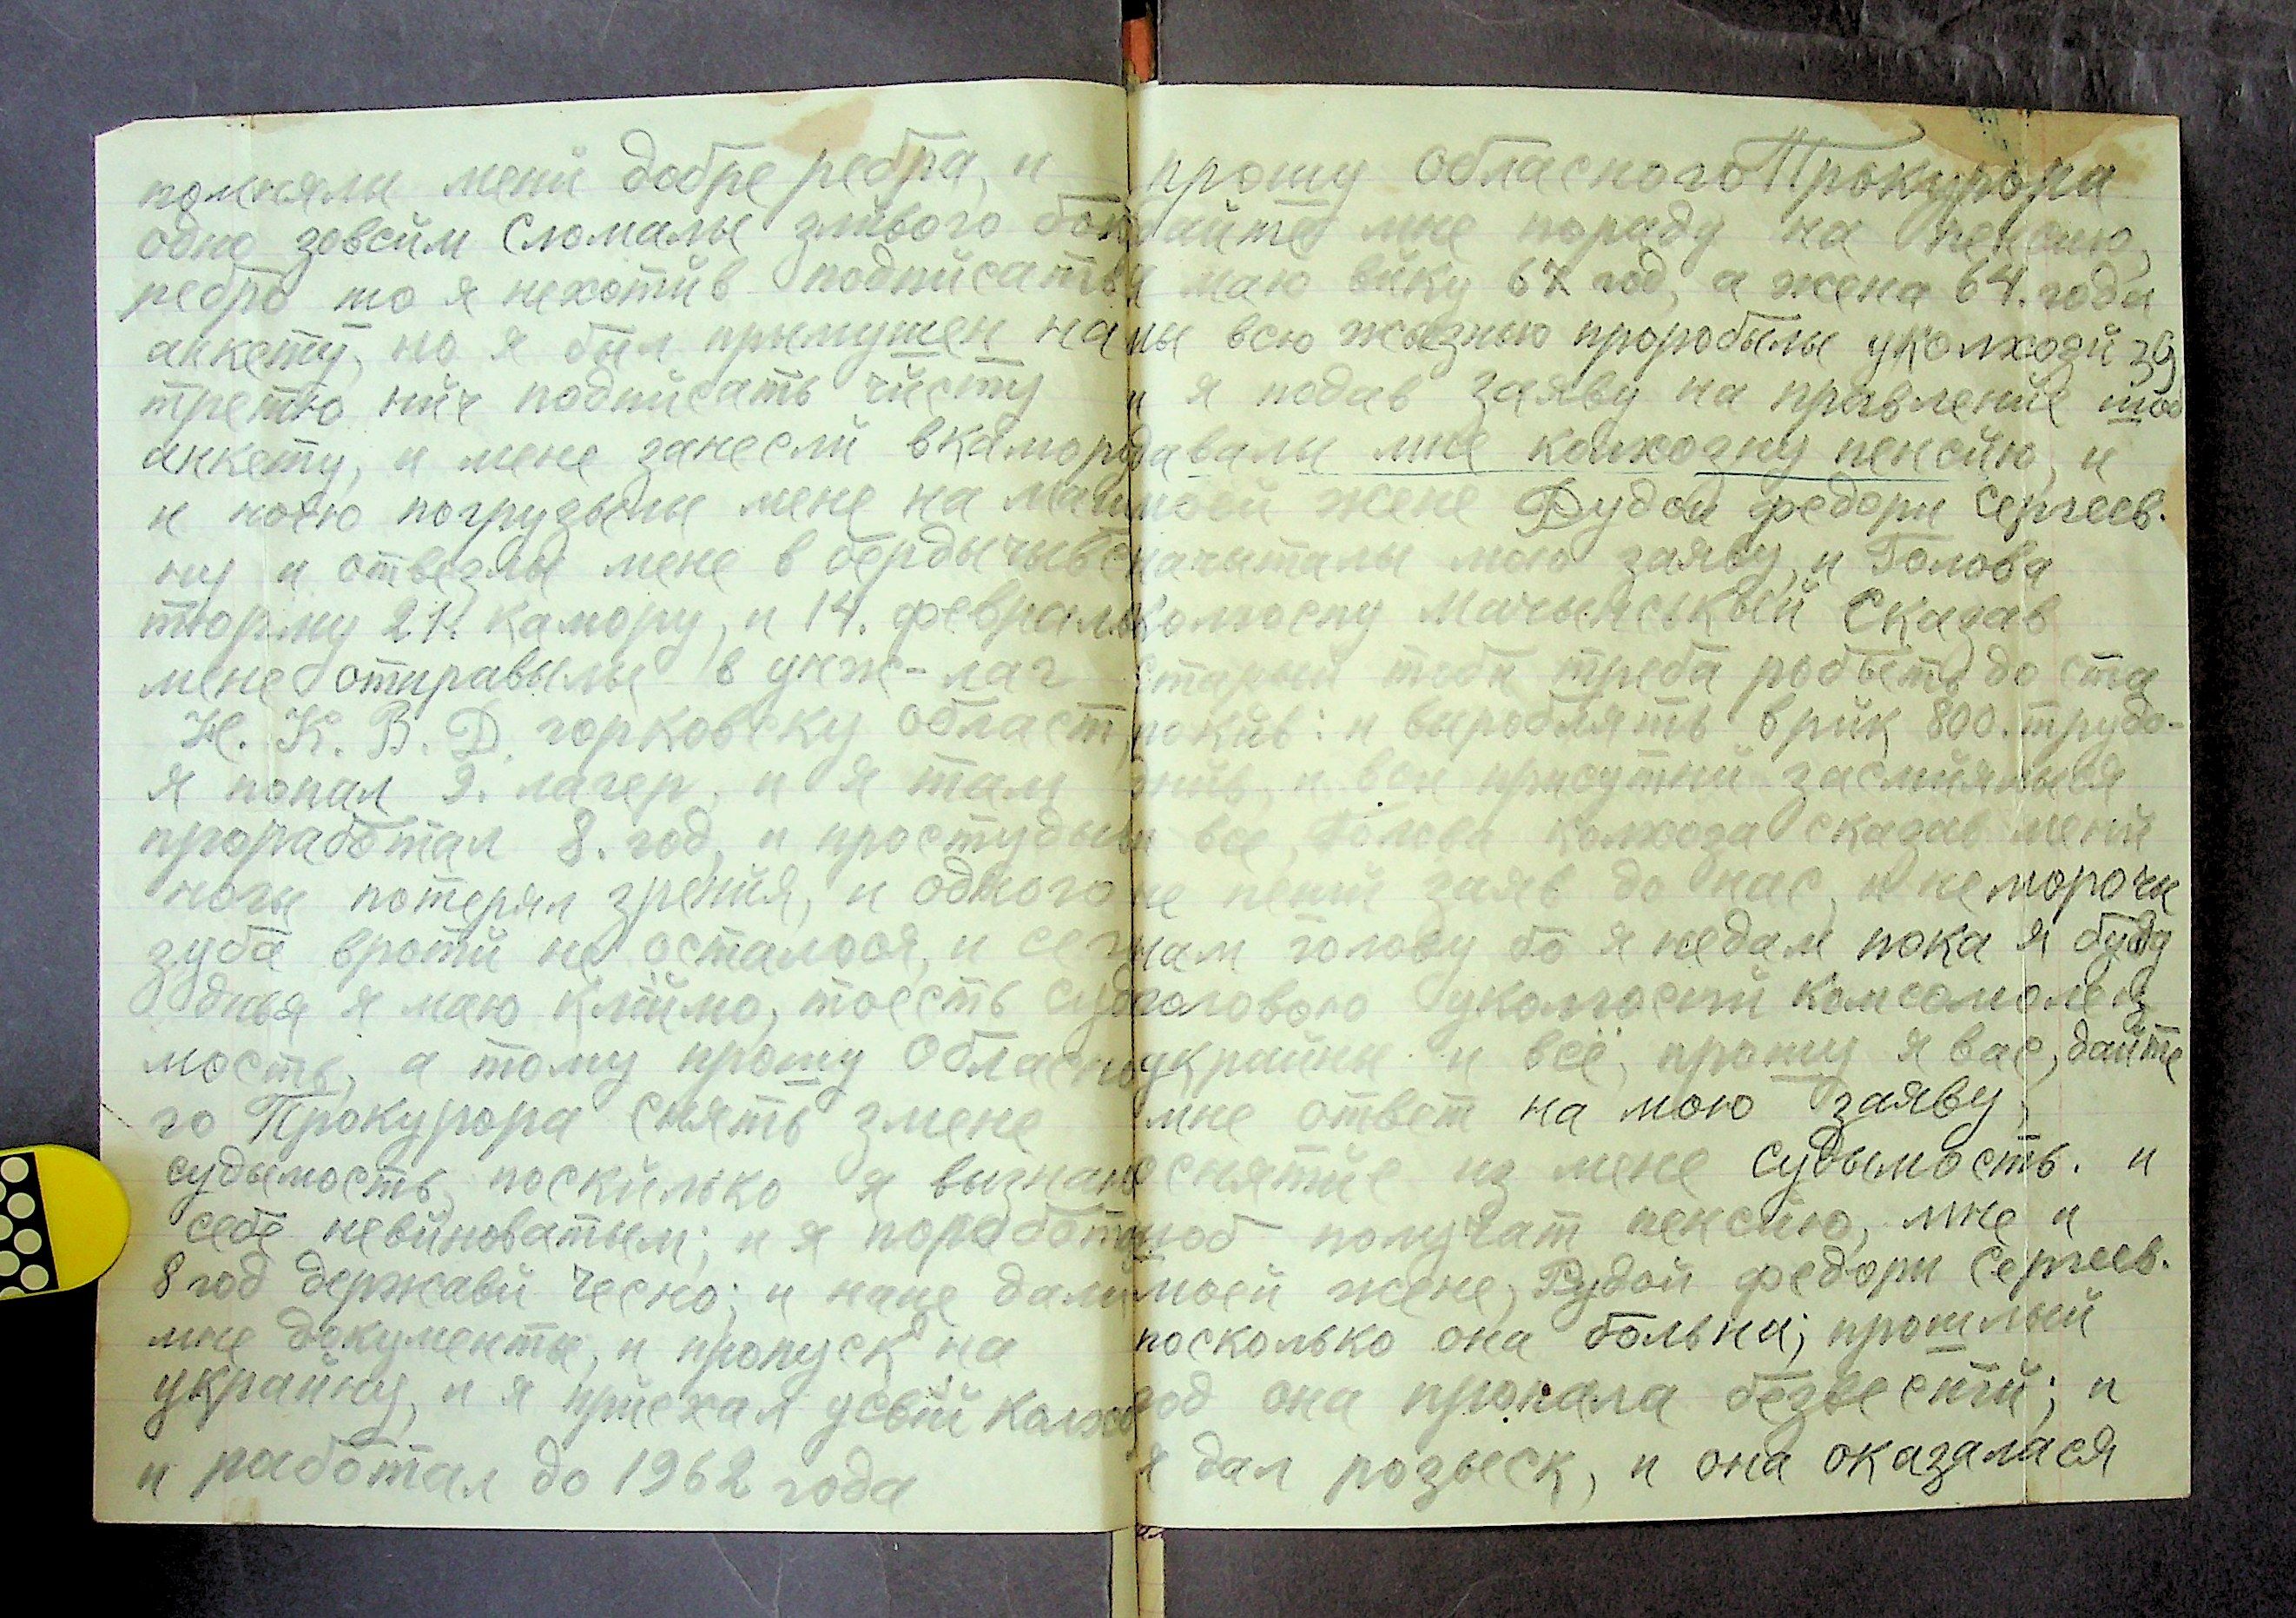 помняли мени добре ребра, и
одно зовсйм сломалы злйвого бок
ребро то я нехотйв подписать
анкету, но я был прымушен на
третю нйч подписать чйсту
анкету, и мене занеслй вкамору
и ночю погрузылы мене на маши
ну и отвезлы мене в бердычыв
тюрму 21. камору, и 14. февраль
мене отправылы в унж-лаг
Н. К. В. Д. горковску област
я попал 9. лагер, и я там
проработал 8. год, и простудыл
ногы потерял зренйя, и одного
зуба вротй не осталося, и сего
дньа я маю клймо, тоесть суды
мость, а тому прошу Обласно
го Прокурора снять змене
судымость, поскйлько я вызнаю
себе невйноватым; и я поработ
8 год державй чесно; и наце далы
мне документы, и пропуск на
украйну, и я прйехал усвйй колхо
и работал до 1962 года
прошу Обласного Прокурора
дайте мне пораду на пенсию,
я маю вйку 67 год, а жена 64. года
мы всю жызнью проробылы уколходй
и я подав заяву на правленйе шоб
давалы мне колхозну пенсйю, и
моей жене Рудой федоры Сергеев.
начыталы мою заяву, и Голова
Колгоспу Мачынськый Сказав
Старый тоби треба робыть до ста
рокив: и вырoблять врйк 800. трудо-
днйв, и вси присутнй засмйялыся
и все, Голова колхоза сказав менй
не пены заяв до нас, и не морочы
нам голову бо я недам пока я буду
головою уколгоспй комсомолец
украйны и всё, прошу я вас, дайте
мне ответ на мою заяву,
оснятйе из мене судымость. и
шоб получат пенсйю, мне и
моей жене, Рудой федоры Сергеев.
посколько она больна; прошлый
год она пропала безвестй; и
я дал розыск, и она оказалася